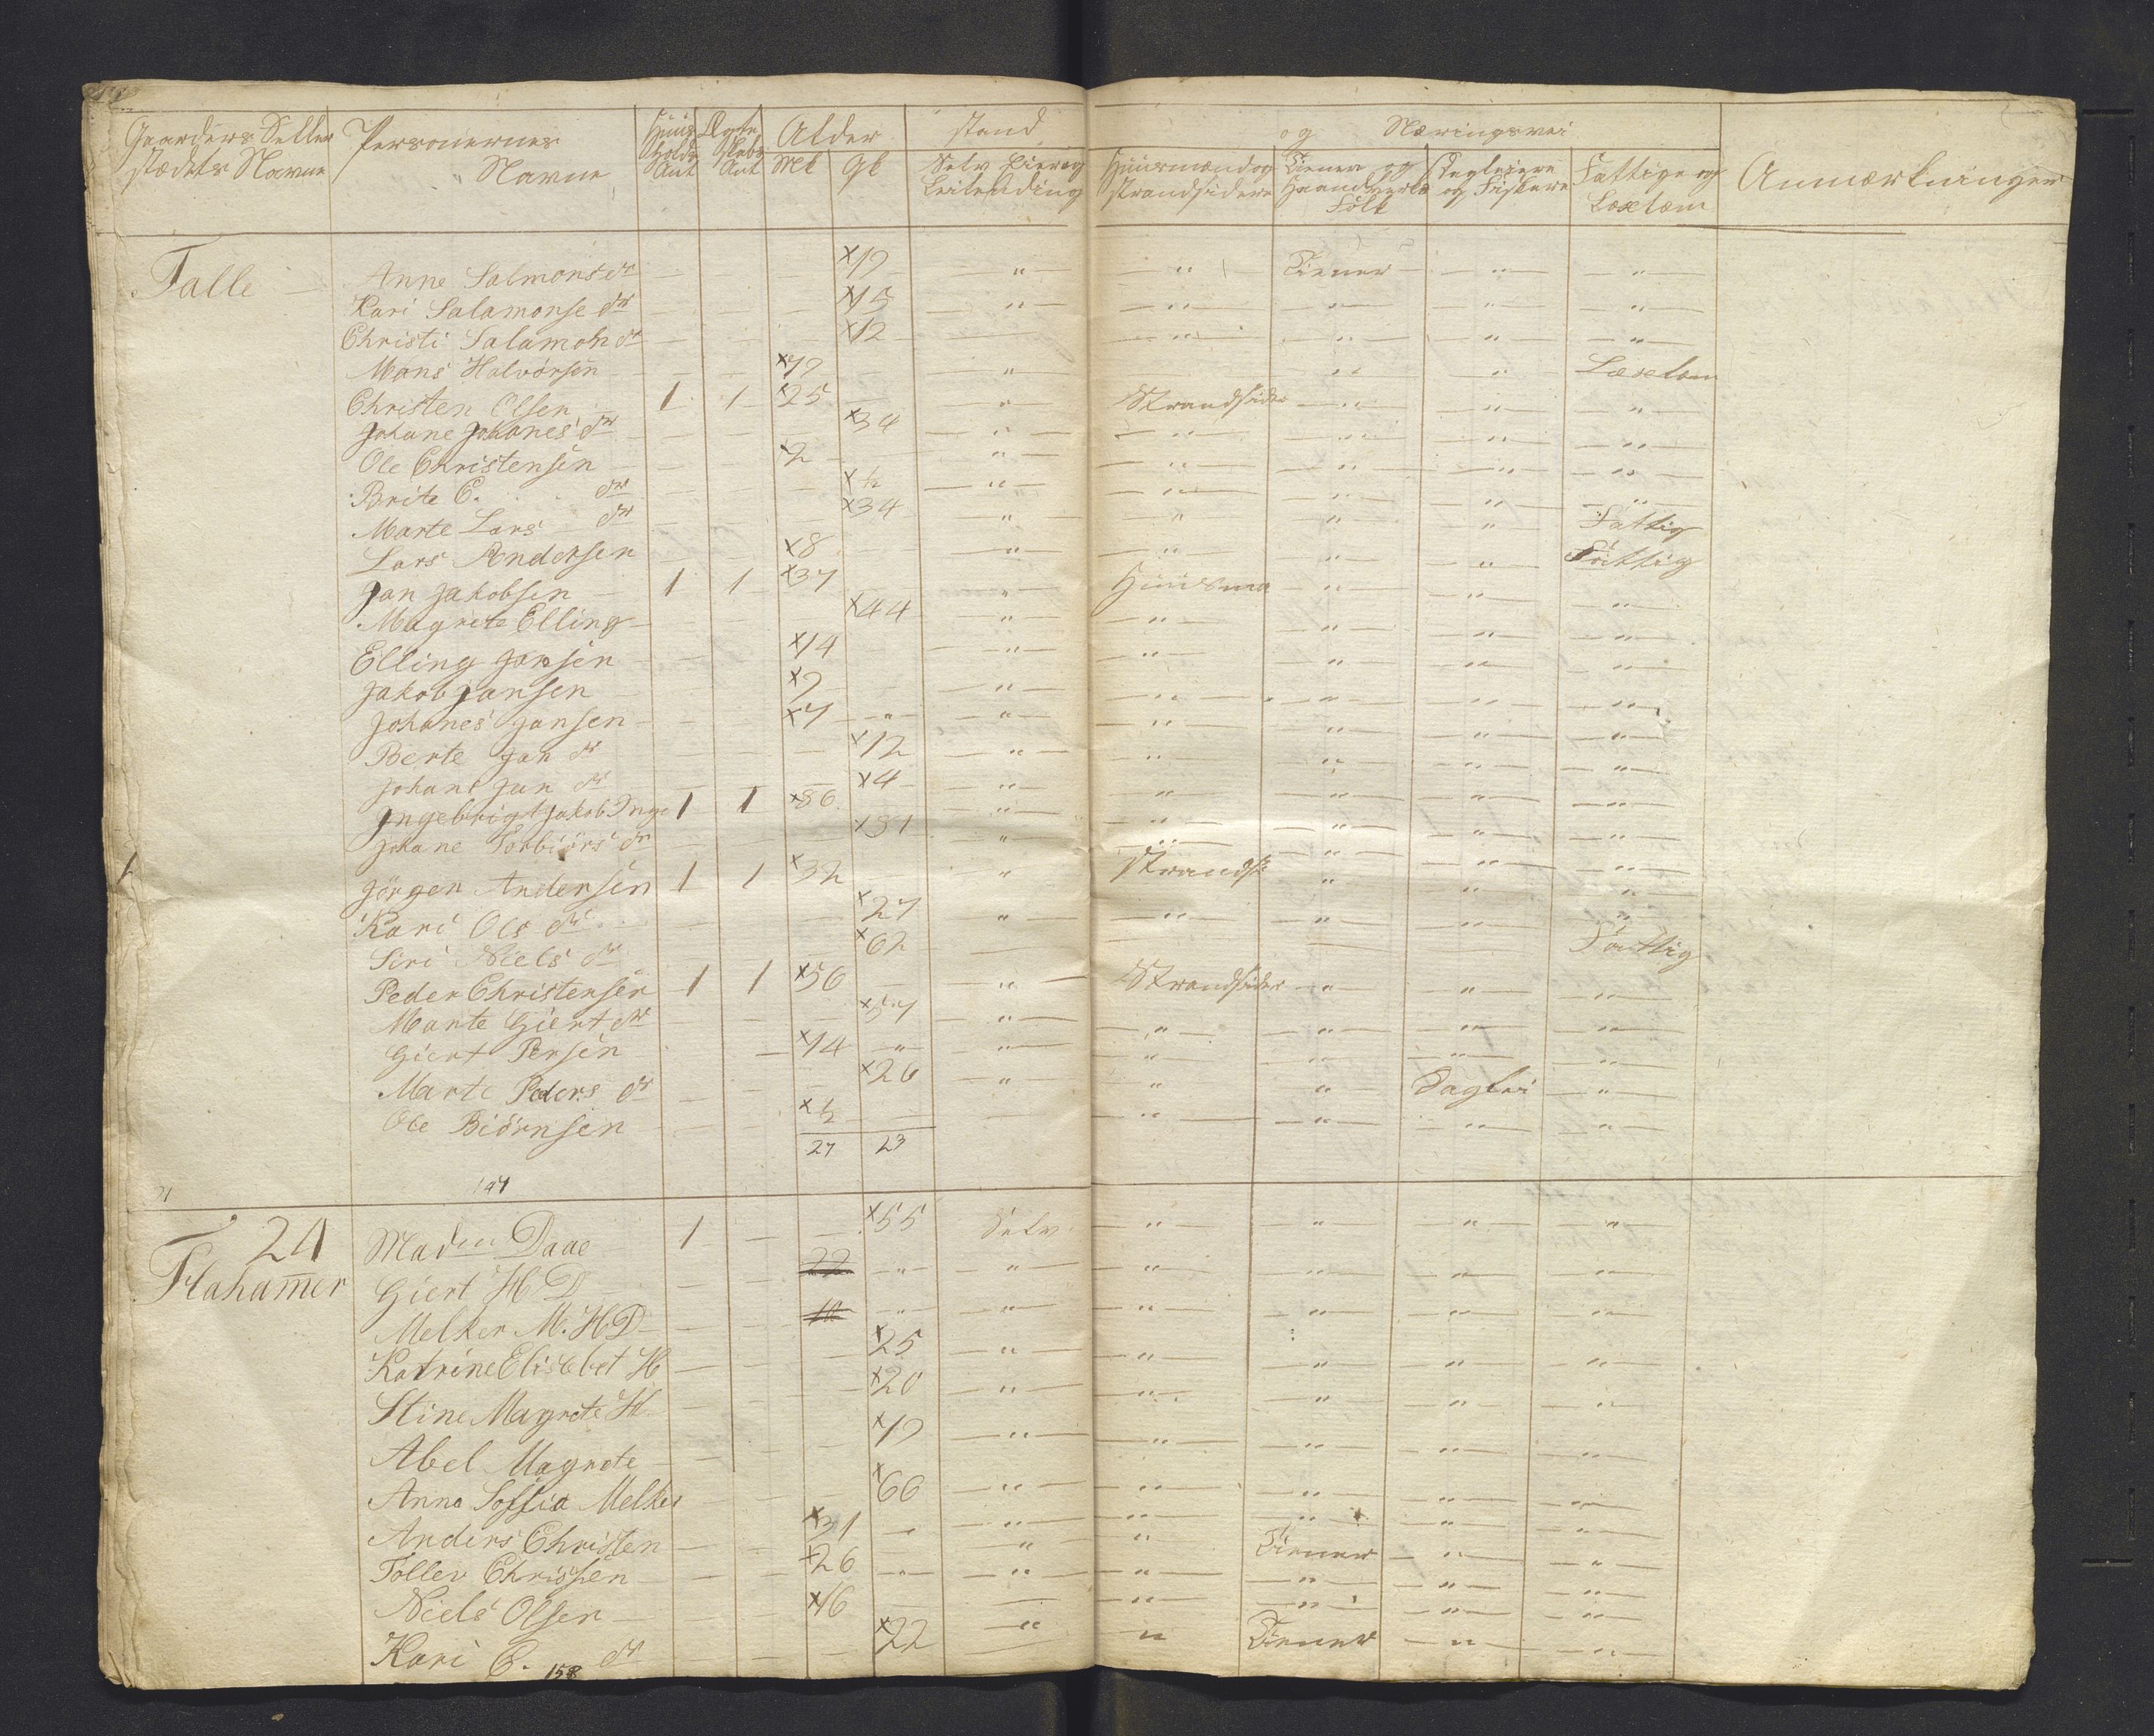 Gaardens Eller Personernes Huus Ægte Alder stand og Næringsvei
stædets Navne Navne holds Ant skabs Ant Mk Qk Selv Eier og Leilending Huusmænd og strandsidere Tiener og Haandverks Folk Dagleiere og Fiskere Fattige og Læselæm Anmærkninger
Talle Anne Salmons dr x19 " " Tiener " "
Kari Salamonse dr x15 " " " " "
Christi Salamon dr x12 " " " "
Mons Halvorsen x79 " " " Læselæm
Christen Olsen 1 1 x25 " Strandsider " " "
Johane Johanes dr x34 " " " " "
Ole Christensen x2 " " " " "
Brite C. dr x½ " " " " "
Marte Lars dr x34 " " " " Fattig
Lars Andersen x8 " " " " Fattig
Jan Jakobsen 1 1 x37 " Huusma " " "
Magrete Elling x44 " " " " "
Elling Jansen x14 " " " " "
Jakob Jansen x9 " " " " "
Johanes Jansen x7 " " " " " "
Berte Jan dr x12 " " " " "
Johane Jan dr x4 " " " " "
Ingebrigt Jakob Inge 1 1 x86 " " " " "
Johane Torbiörs dr x51 " " " " "
Jörgen Andersen 1 1 x32 " Strandsi " " "
Kari Ols dr x27 " " " " "
Siri Niels dr x62 Fattig
Peder Christensen 1 1 x56 " Strandsider " " "
Marte Giert dr x57 " " " " "
Giert Persen x14 " " " " " "
Marte Peders dr x26 " " " Daglei "
Ole Biörnsen x½ " " " "
27 23
147
24 Madm Daae 1 x55 Selv " " " "
Flahamer Giert H D 22 " " " " " "
Melker M. H D 18 " " " " " "
Katrine Elisebet H x25 " " " " "
Stine Magrete H x20 " " " " "
Abel Magrete x19 " " " " "
Anna Soffia Melker x66 " " " " "
Anders Christen x31 " " " Tiener " "
Tollev Chrissen x26 " " " " " "
Niels Olsen x16 " " " "
Kari C. dr x22 " " Tiener " "
158